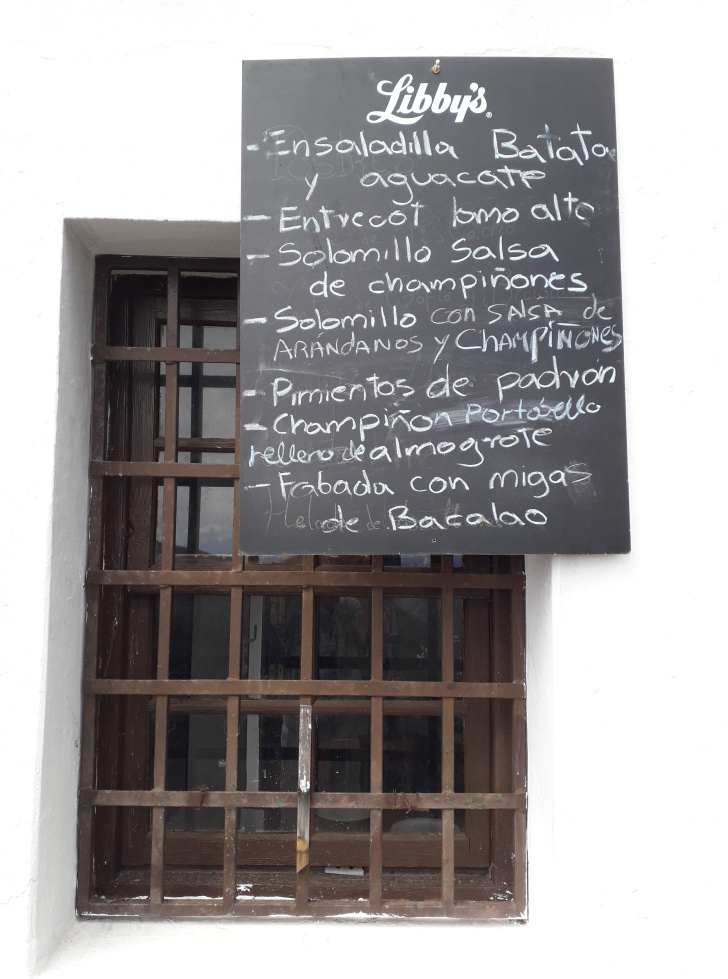 Libby's®
- Ensaladilla Batata
y aguacate
- Entrecot lomo alto
- Solomillo Salsa
de champiñones
- Solomillo con SALSA de
ARÁNDANOS y CHAMPIÑONES
- Pimientos de padrón
- Champiñon Portobello
relleno de almogrote
- Fabada con migas
de Bacalao